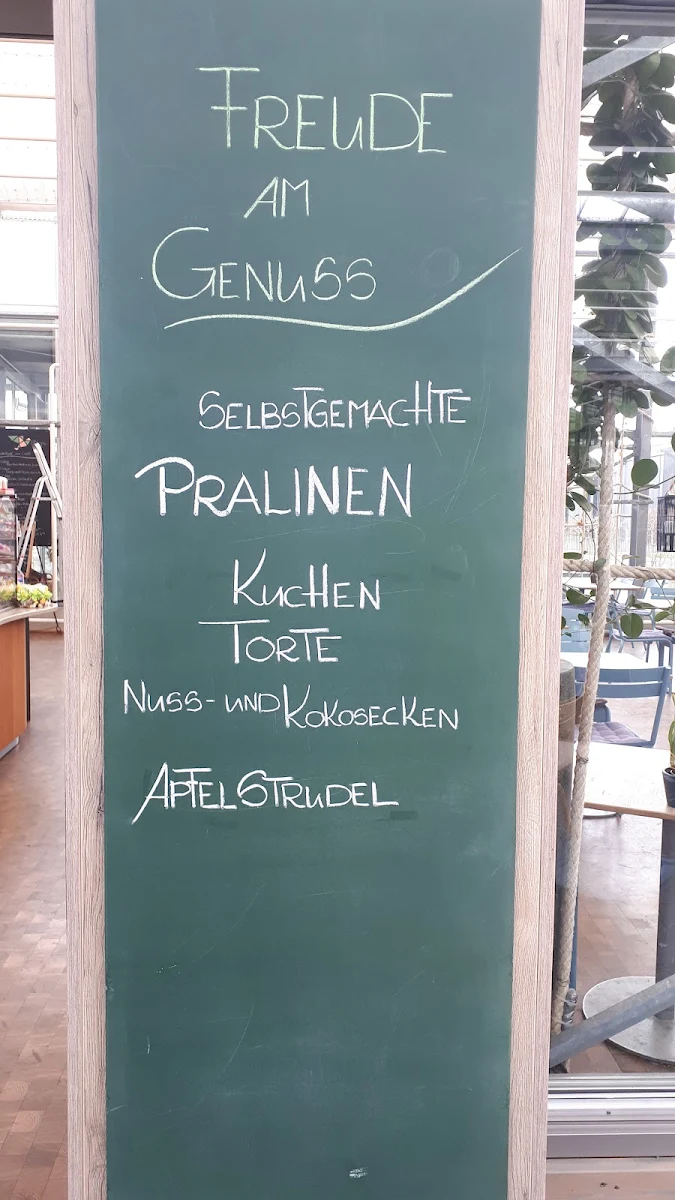 FREUDE
AM
GENUSS
SELBSTGEMACHTE
PRALINEN
KUCHEN
TORTE
NUSS- UND KOKOSECKEN
APFELSTRUDEL